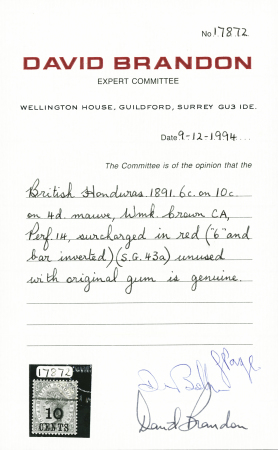 No 17872
DAVID BRANDON
EXPERT COMMITTEE
WELLINGTON HOUSE, GUILDFORD, SURREY GU3 1DE.
Date 9-12-1994...
The Committee is of the opinion that the
British Honduras 1891. 6c. on 10c
on 4d. mauve, Wmk. Crown CA,
Perf. 14, surcharged in red ("6" and
bar inverted) (S.G. 43a) unused
with original gum is genuine.
17872
10
CENTS
David Brandon